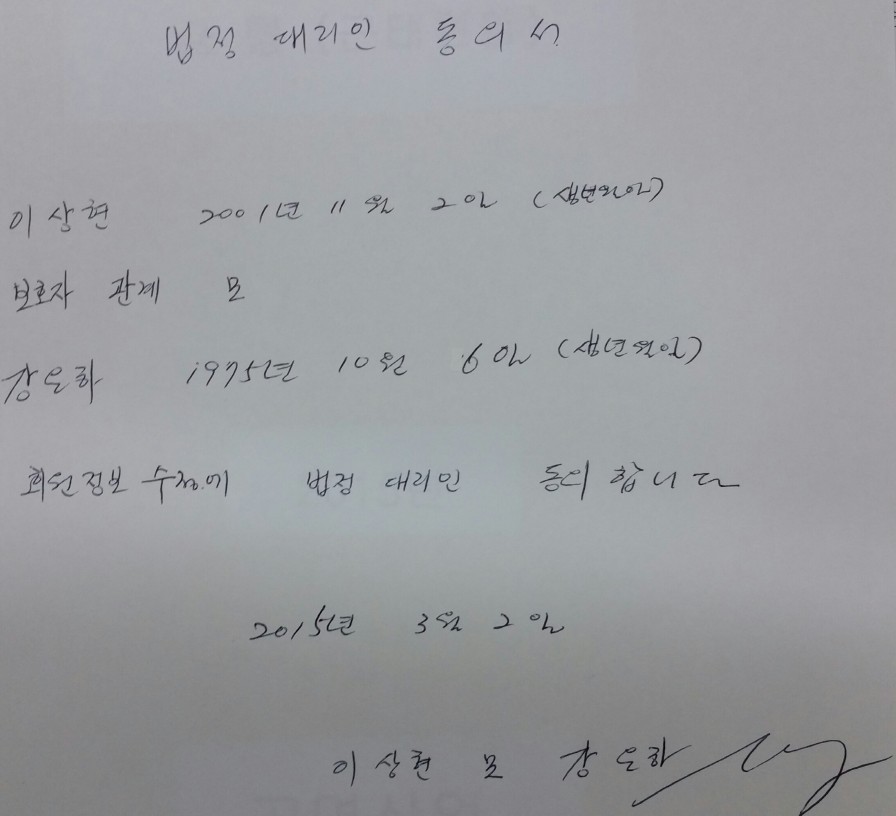 법정 대리인 동의서
이상현 2001년 11월 2일 (생년월일)
보호자 관계 모
강은화 1975년 10월 6일 (생년월일)
회원정보 수정에 법정 대리인 동의 합니다
2015년 3월 2일
이상현 모 강은화